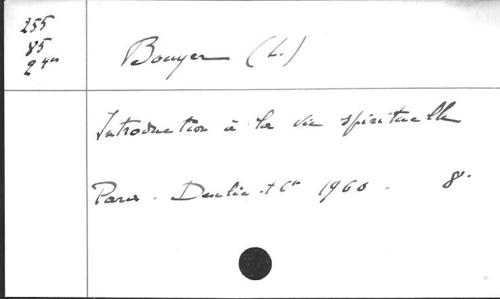 255
85
2
Bouyer (L.)
Introduction à la vie spirituelle
Paris. Desclée + Cie 1960. 8°